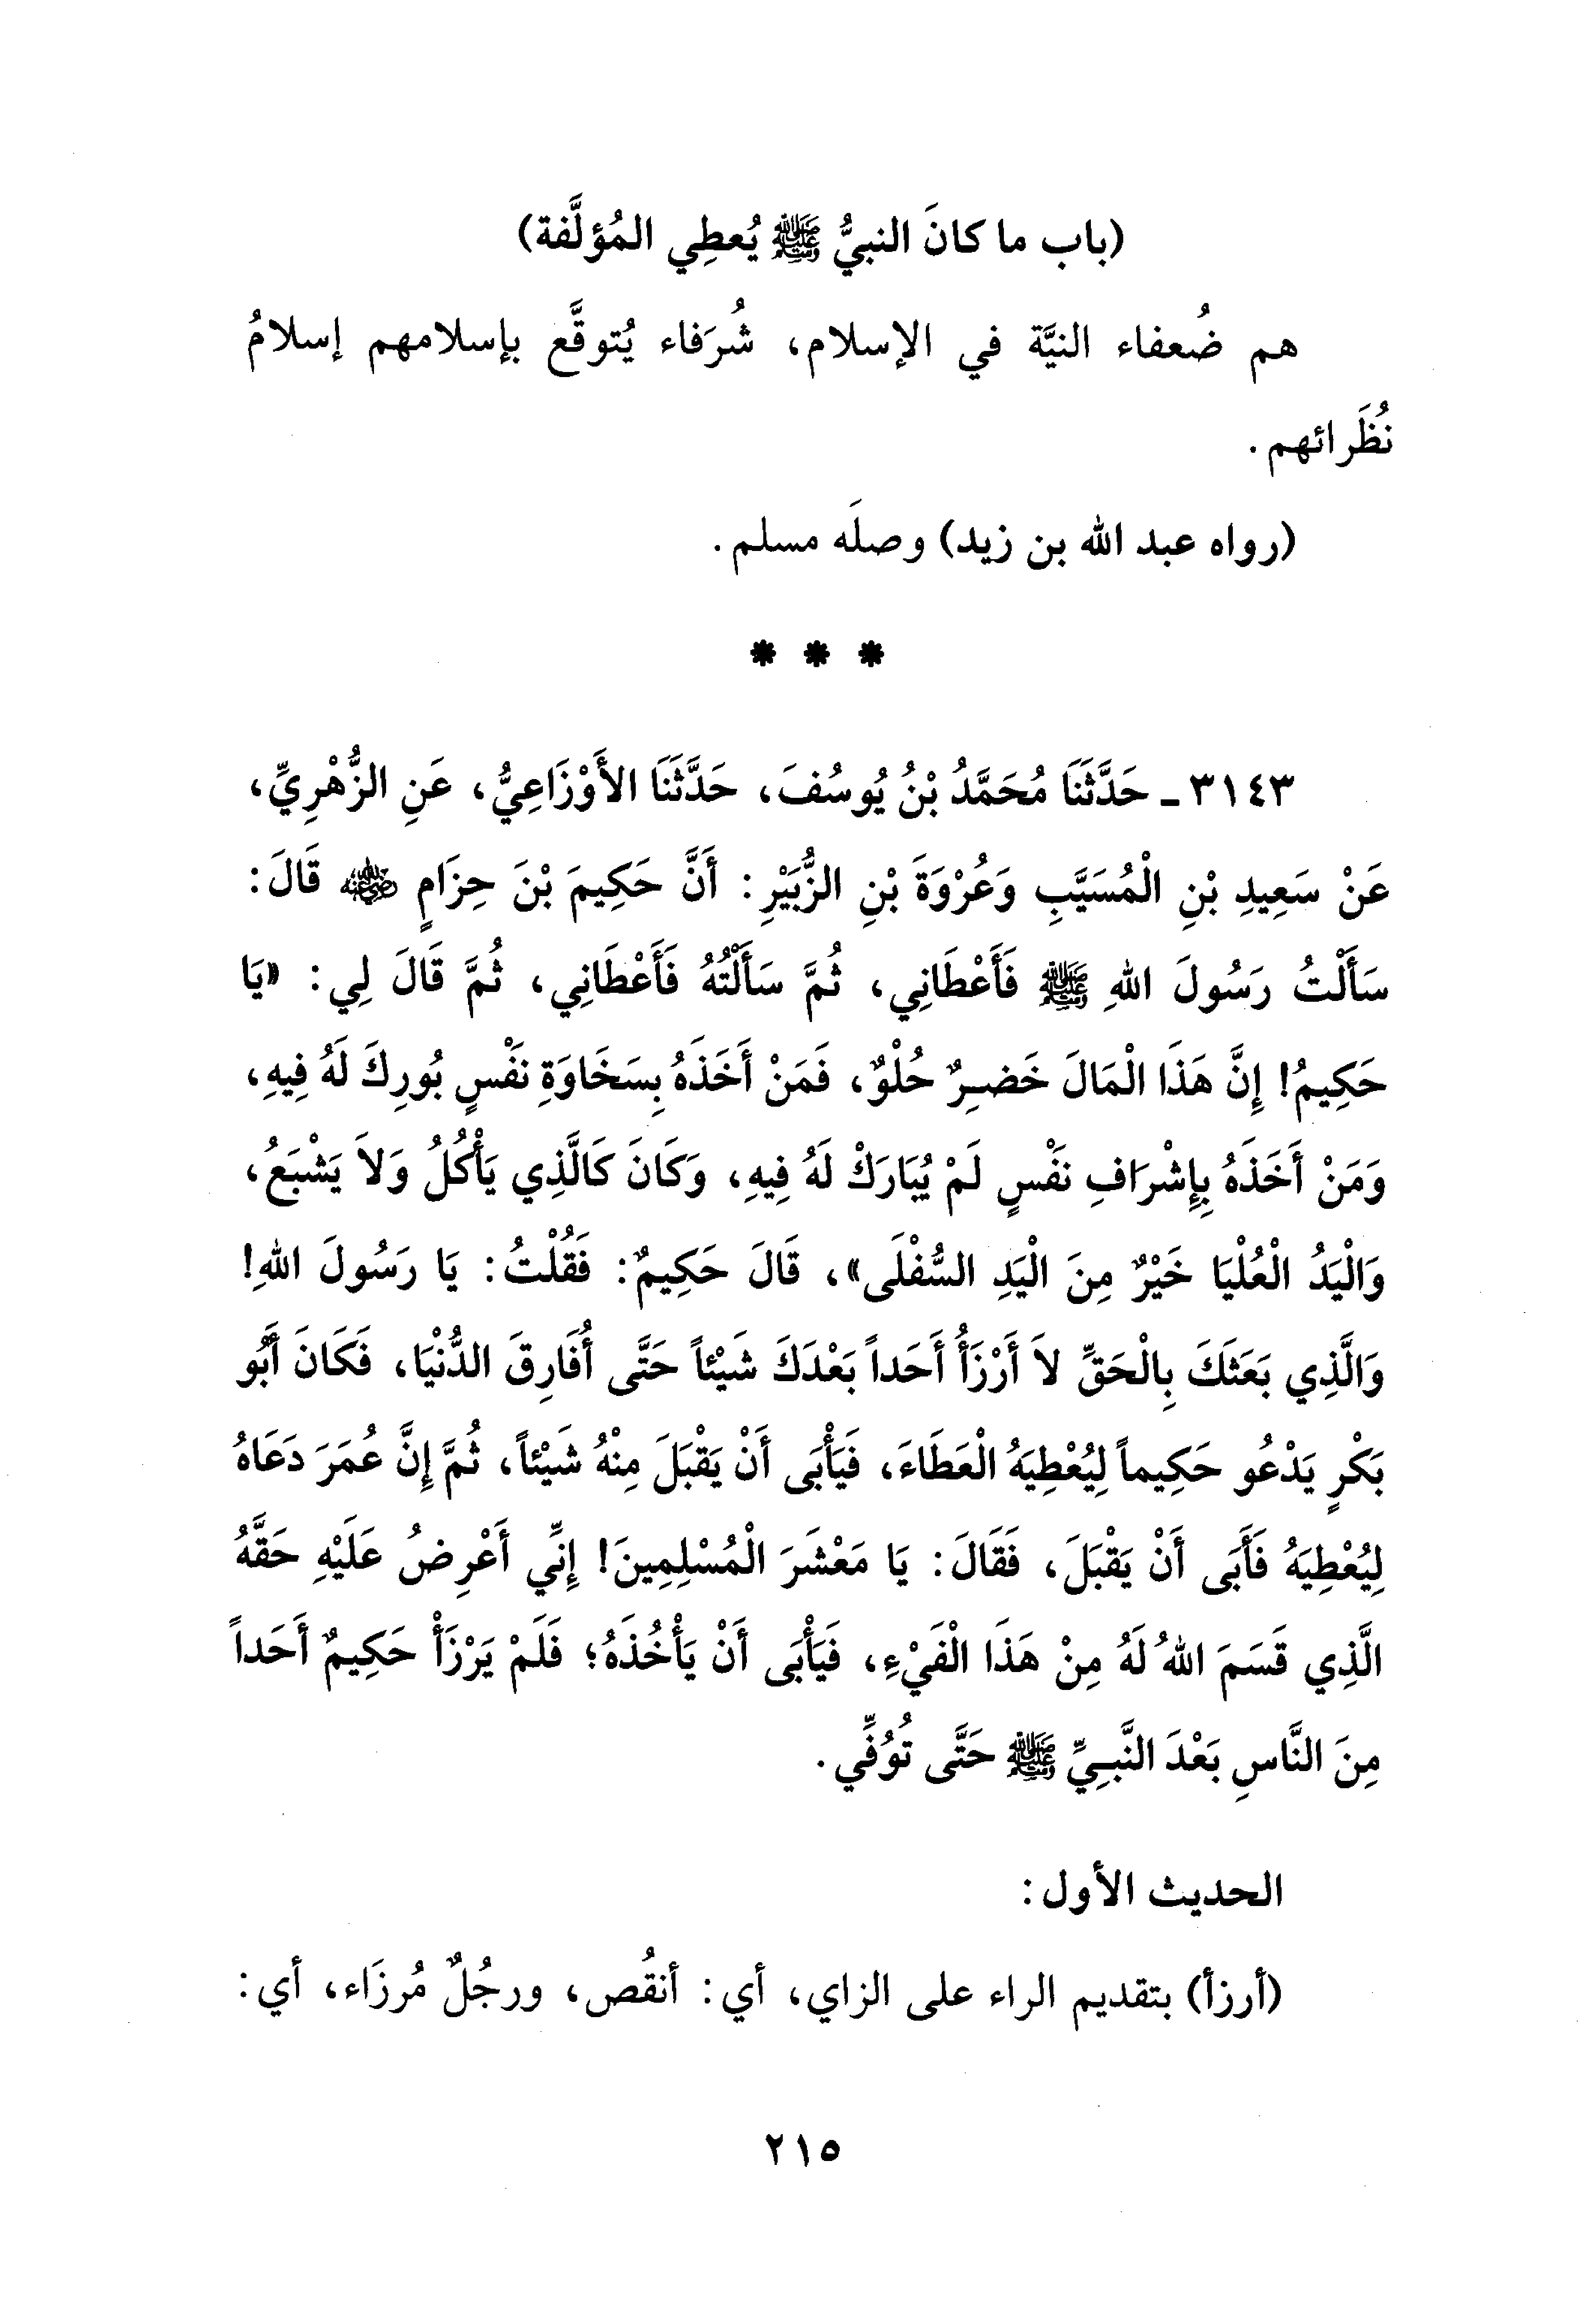 (باب ما كانَ النبيُّ ﷺ يُعطِي المُؤلَّفة)
هم ضُعفاء النيَّة في الإسلام، شُرَفاء يُتوقَّع بإسلامهم إسلامُ
نُظَرائهم.
(رواه عبد الله بن زيد) وصلَه مسلم.
* * *
٣١٤٣ ـ حَدَّثَنَا مُحَمَّدُ بْنُ يُوسُفَ، حَدَّثَنَا الأَوْزَاعِيُّ، عَنِ الزُّهْرِيِّ،
عَنْ سَعِيدِ بْنِ الْمُسَيَّبِ وَعُرْوَةَ بْنِ الزُّبَيْرِ: أَنَّ حَكِيمَ بْنَ حِزَامٍ رضي الله عنه قَالَ:
سَأَلْتُ رَسُولَ اللهِ ﷺ فَأَعْطَانِي، ثُمَّ سَأَلْتُهُ فَأَعْطَانِي، ثُمَّ قَالَ لِي: «يَا
حَكِيمُ! إِنَّ هَذَا الْمَالَ خَضِرٌ حُلْوٌ، فَمَنْ أَخَذَهُ بِسَخَاوَةِ نَفْسٍ بُورِكَ لَهُ فِيهِ،
وَمَنْ أَخَذَهُ بِإِشْرَافِ نَفْسٍ لَمْ يُبَارَكْ لَهُ فِيهِ، وَكَانَ كَالَّذِي يَأْكُلُ وَلاَ يَشْبَعُ،
وَالْيَدُ الْعُلْيَا خَيْرٌ مِنَ الْيَدِ السُّفْلَى»، قَالَ حَكِيمٌ: فَقُلْتُ: يَا رَسُولَ اللهِ!
وَالَّذِي بَعَثَكَ بِالْحَقِّ لاَ أَرْزَأُ أَحَداً بَعْدَكَ شَيْئاً حَتَّى أُفَارِقَ الدُّنْيَا، فَكَانَ أَبُو
بَكْرٍ يَدْعُو حَكِيماً لِيُعْطِيَهُ الْعَطَاءَ، فَيَأْبَى أَنْ يَقْبَلَ مِنْهُ شَيْئاً، ثُمَّ إِنَّ عُمَرَ دَعَاهُ
لِيُعْطِيَهُ فَأَبَى أَنْ يَقْبَلَ، فَقَالَ: يَا مَعْشَرَ الْمُسْلِمِينَ! إِنِّي أَعْرِضُ عَلَيْهِ حَقَّهُ
الَّذِي قَسَمَ اللهُ لَهُ مِنْ هَذَا الْفَيْءِ، فَيَأْبَى أَنْ يَأْخُذَهُ؛ فَلَمْ يَرْزَأْ حَكِيمٌ أَحَداً
مِنَ النَّاسِ بَعْدَ النَّبِيِّ ﷺ حَتَّى تُوُفِّي.
الحديث الأول:
(أرزأ) بتقديم الراء على الزاي، أي: أنقُص، ورجُلٌ مُرزَاء، أي:
٢١٥